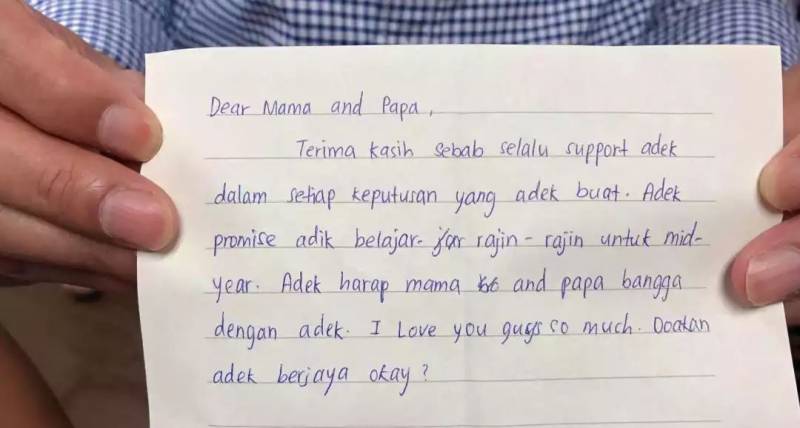 Dear Mama and Papa,
Terima kasih sebab selalu support adek
dalam setiap keputusan yang adek buat. Adek
promise adik belajar. rajin - rajin untuk mid-
year. Adek harap mama and papa bangga
dengan adek. I Love you guys so much. Doakan
adek berjaya okay?